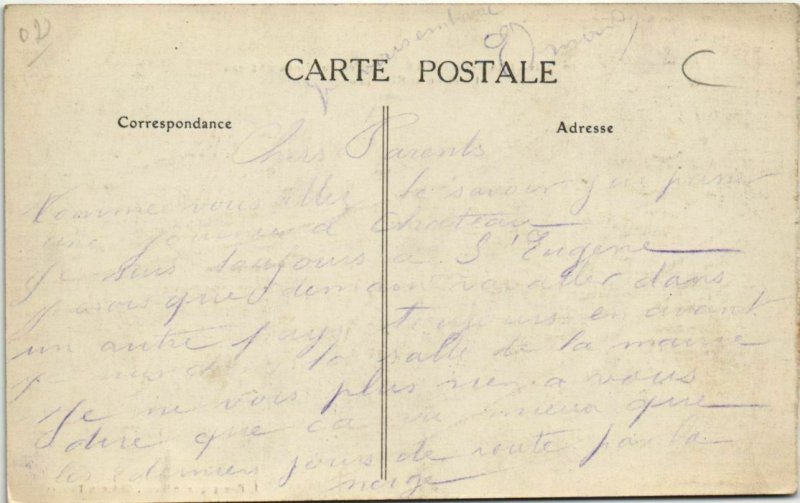 02
CARTE POSTALE
Correspondance
Adresse
Chers Parents
Comme vous allez le savoir j'ai passé
une journée à Chateau
Je suis toujours à St Eugene
Je crois que demain va aller dans
un autre pays toujours en avant
Je suis la salle de la mairie
Je ne vois plus rien a vous
dire que ca va mieux que
les 2 derniers jours de route par la
neige